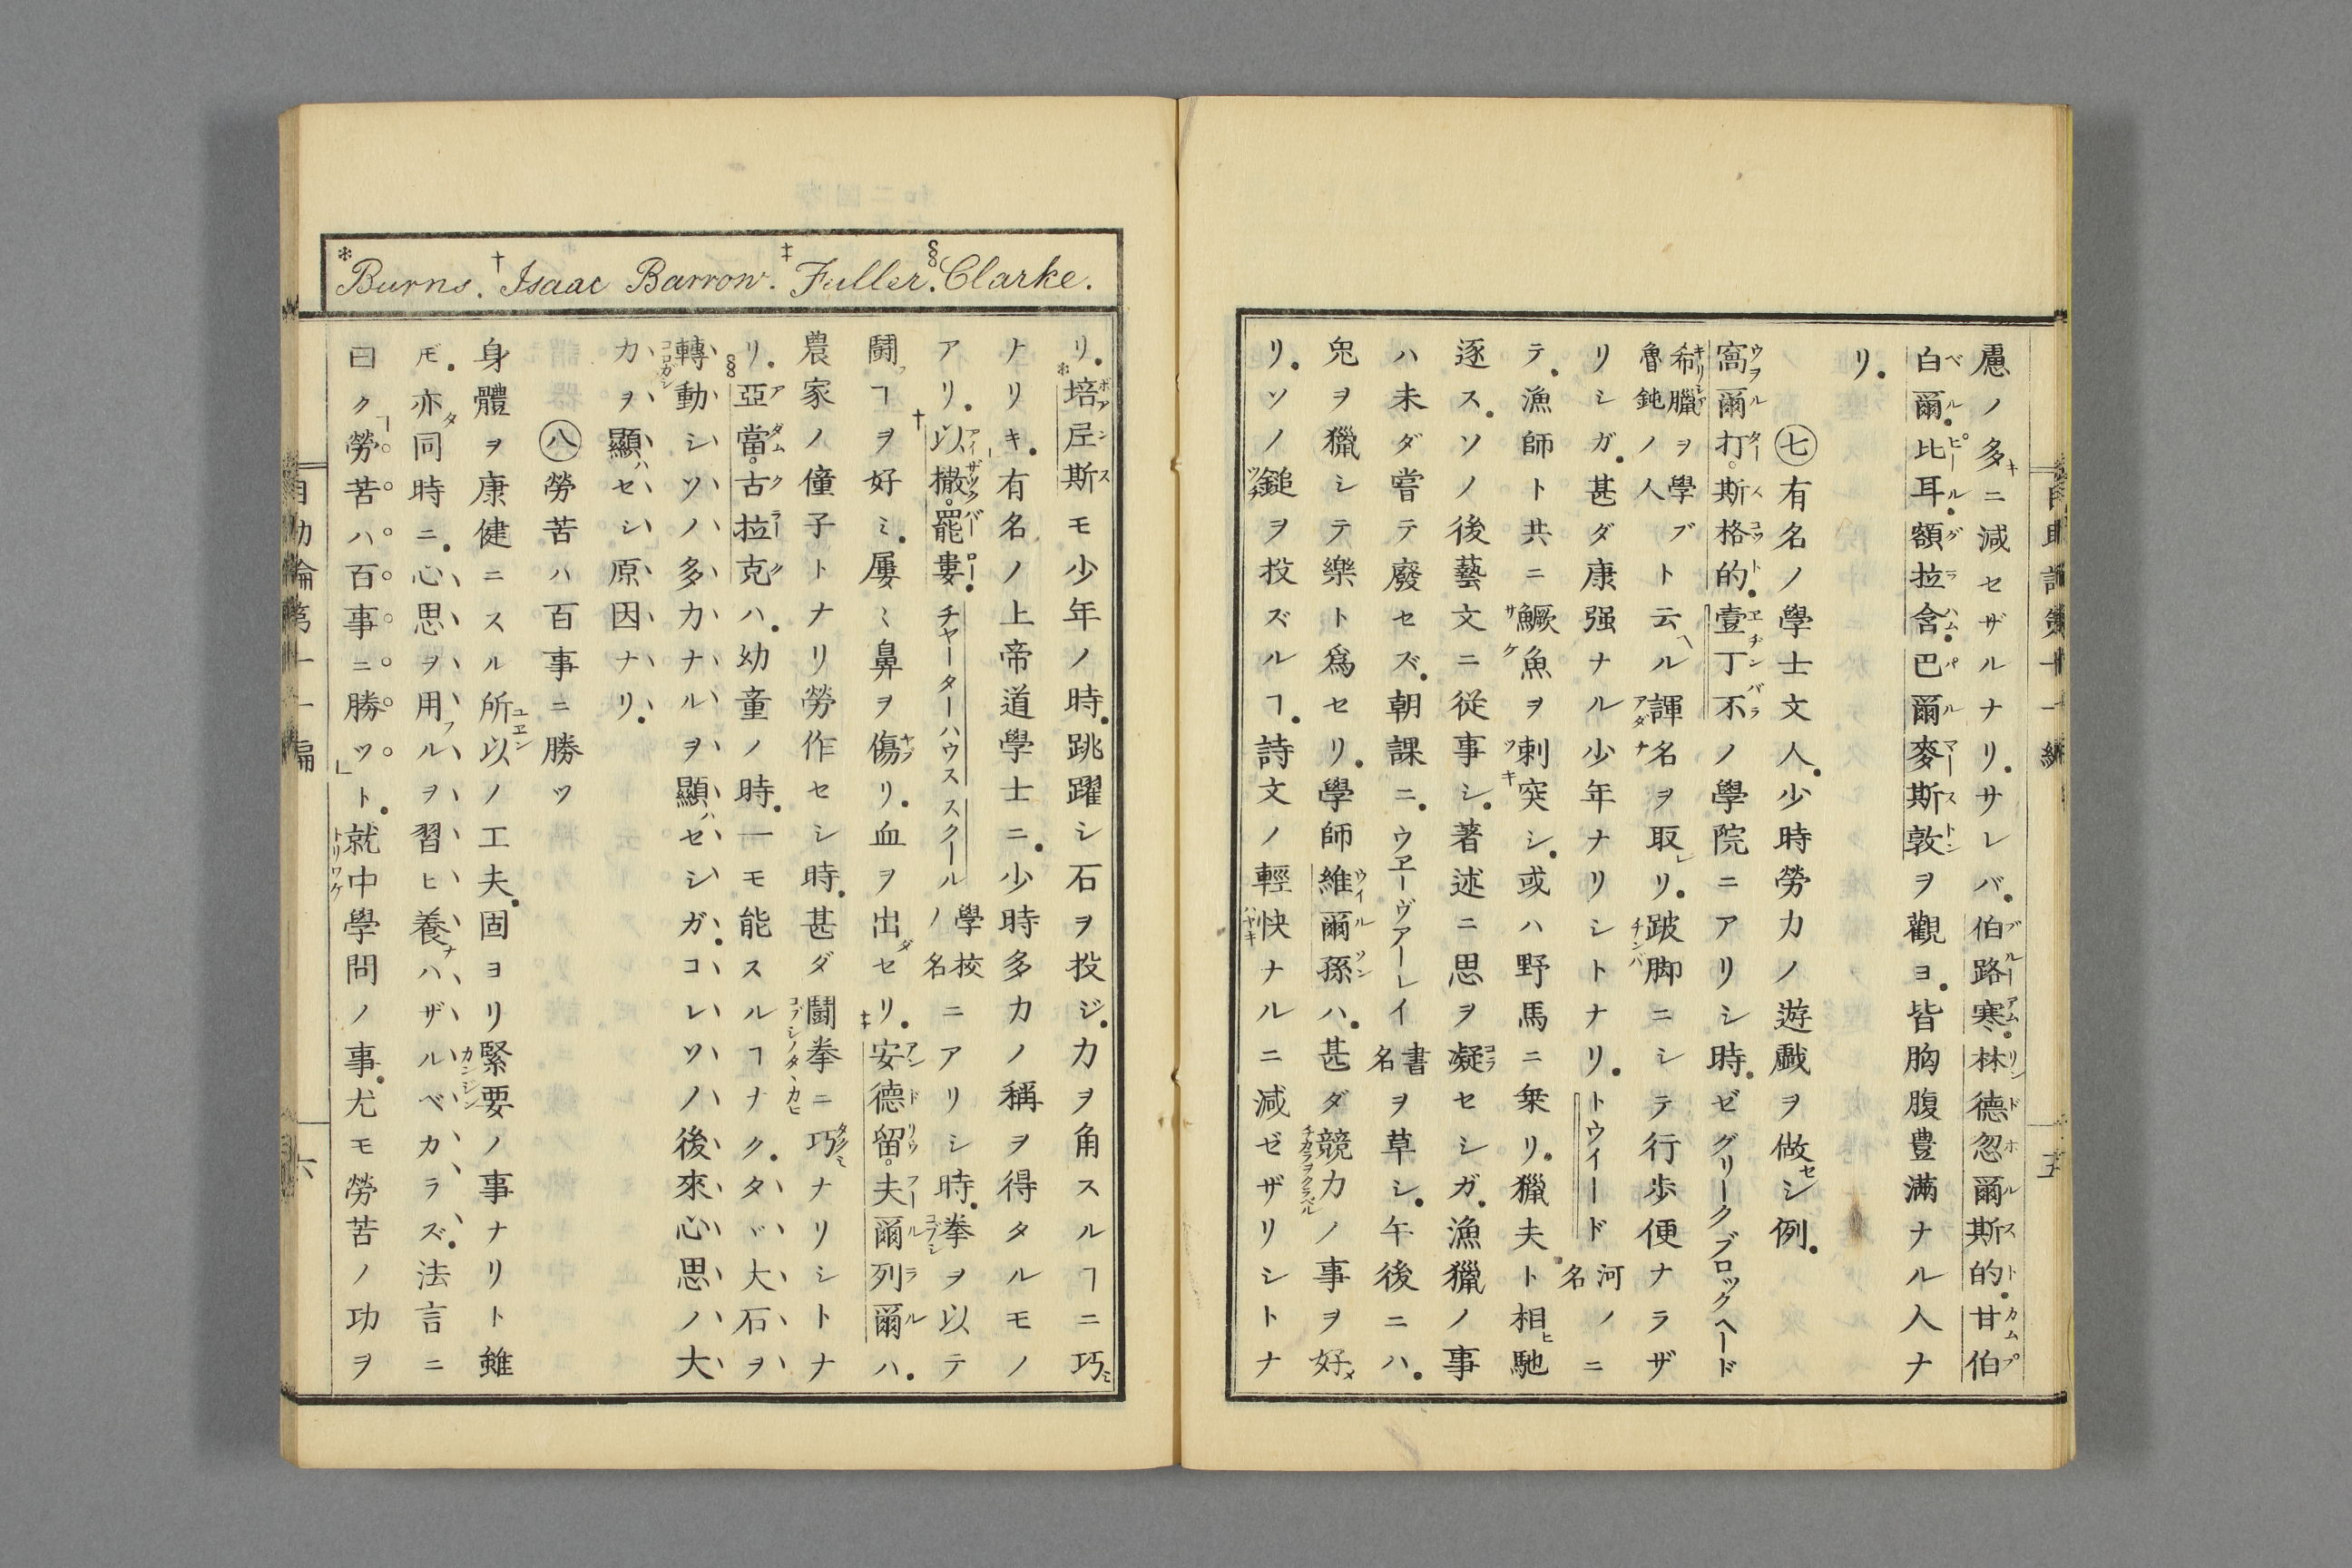 慮ノ多キニ減セザルナリ。サレバ。伯路寒。林德忽爾斯的。甘伯
白爾。比耳。額拉含。巴爾麥斯敦ヲ觀ヨ。皆胸腹豊滿ナル人ナ
リ。
㊆有名ノ學士文人。少時勞力ノ遊戯ヲ做セシ例。
窩爾打。斯格的。壹丁不ノ學院ニアリシ時。ゼグリークブロックヘード
希臘ヲ學ブ魯鈍ノ人ト云ヘル諢名ヲ取レリ。跛脚ニシテ行歩便ナラザ
リシガ。甚ダ康强ナル少年ナリシトナリ。トウイード河ノ名ノニ
テ。漁師ト共ニ鱖魚ヲ刺突シ。或ハ野馬ニ乗リ。獵夫ト相ヒ馳
逐ス。ソノ後藝文ニ従事シ。著述ニ思ヲ凝セシガ。漁獵ノ事
ハ未ダ嘗テ廢セズ。朝課ニ。ウヱーヴアーレイ書名ヲ草シ。午後ニハ。
兎ヲ獵シテ樂ト爲セリ。學師維爾孫ハ。甚ダ競力ノ事ヲ好メ
リ。ソノ鎚ヲ投ズルヿ。詩文ノ輕快ナルニ減ゼザリシトナ
*Burns. †Isaac Barrow. ‡Fuller. §Clarke.
リ。*培㞐斯モ少年ノ時。跳躍シ石ヲ投ジ。力ヲ角スルヿニ巧ミ
ナリキ。有名ノ上帝道學士ニ。少時多力ノ稱ヲ得タルモノ
アリ。†以撒。罷婁チヤーターハウススクール學校ノ名ニアリシ時。拳ヲ以テ
鬪フヿヲ好ミ。屢〻鼻ヲ傷リ。血ヲ出ダセリ。‡安德留。夫爾列爾ハ。
農家ノ僮子トナリ勞作セシ時。甚ダ鬪拳ニ巧ナリシトナ
リ。§亞當。古拉克ハ。幼童ノ時。一モ能スルヿナク。タヾ大石ヲ
轉動シソノ多力ナルヲ顯ハセシガ。コレソノ後來心思ノ大
力ヲ顯ハセシ原因ナリ。
㊇勞苦ハ百事ニ勝ツ
身體ヲ康健ニスル所以ノ工夫。固ヨリ緊要ノ事ナリト雖
𪜈。亦タ同時ニ。心思ヲ用フルヲ習ヒ養ナハザルベカラズ。法言ニ
曰ク「勞苦ハ百事ニ勝ツ」ト。就中學問ノ事。尤モ勞苦ノ功ヲ
自助論第十一編
六